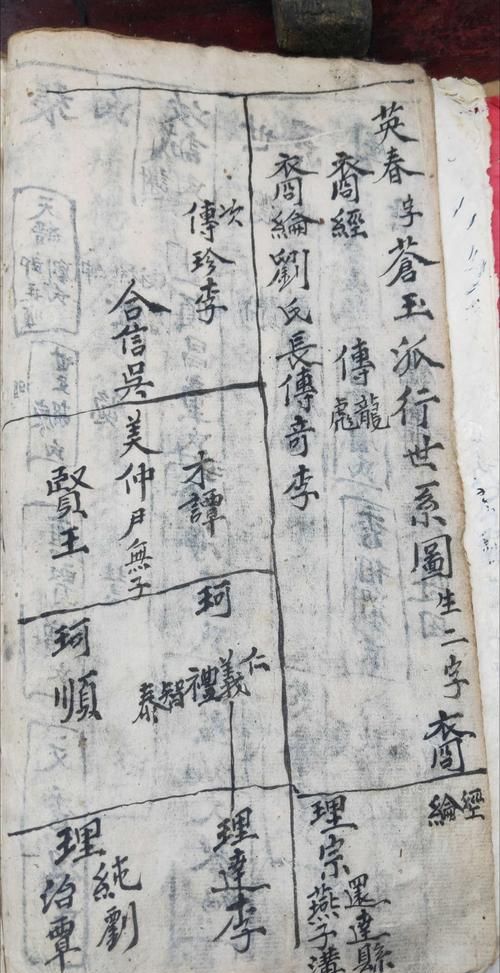 英春字蒼玉派行世系圖生二字裔經
綸
裔經 傳龍
彪
裔綸劉氏長傳奇李
次
傳珍李
合信吳
才譚
美仲尹無子
賢王
珂
仁義禮智泰
珂順
理宗還達縣
燕子溝
理達李
理純劉
理治覃